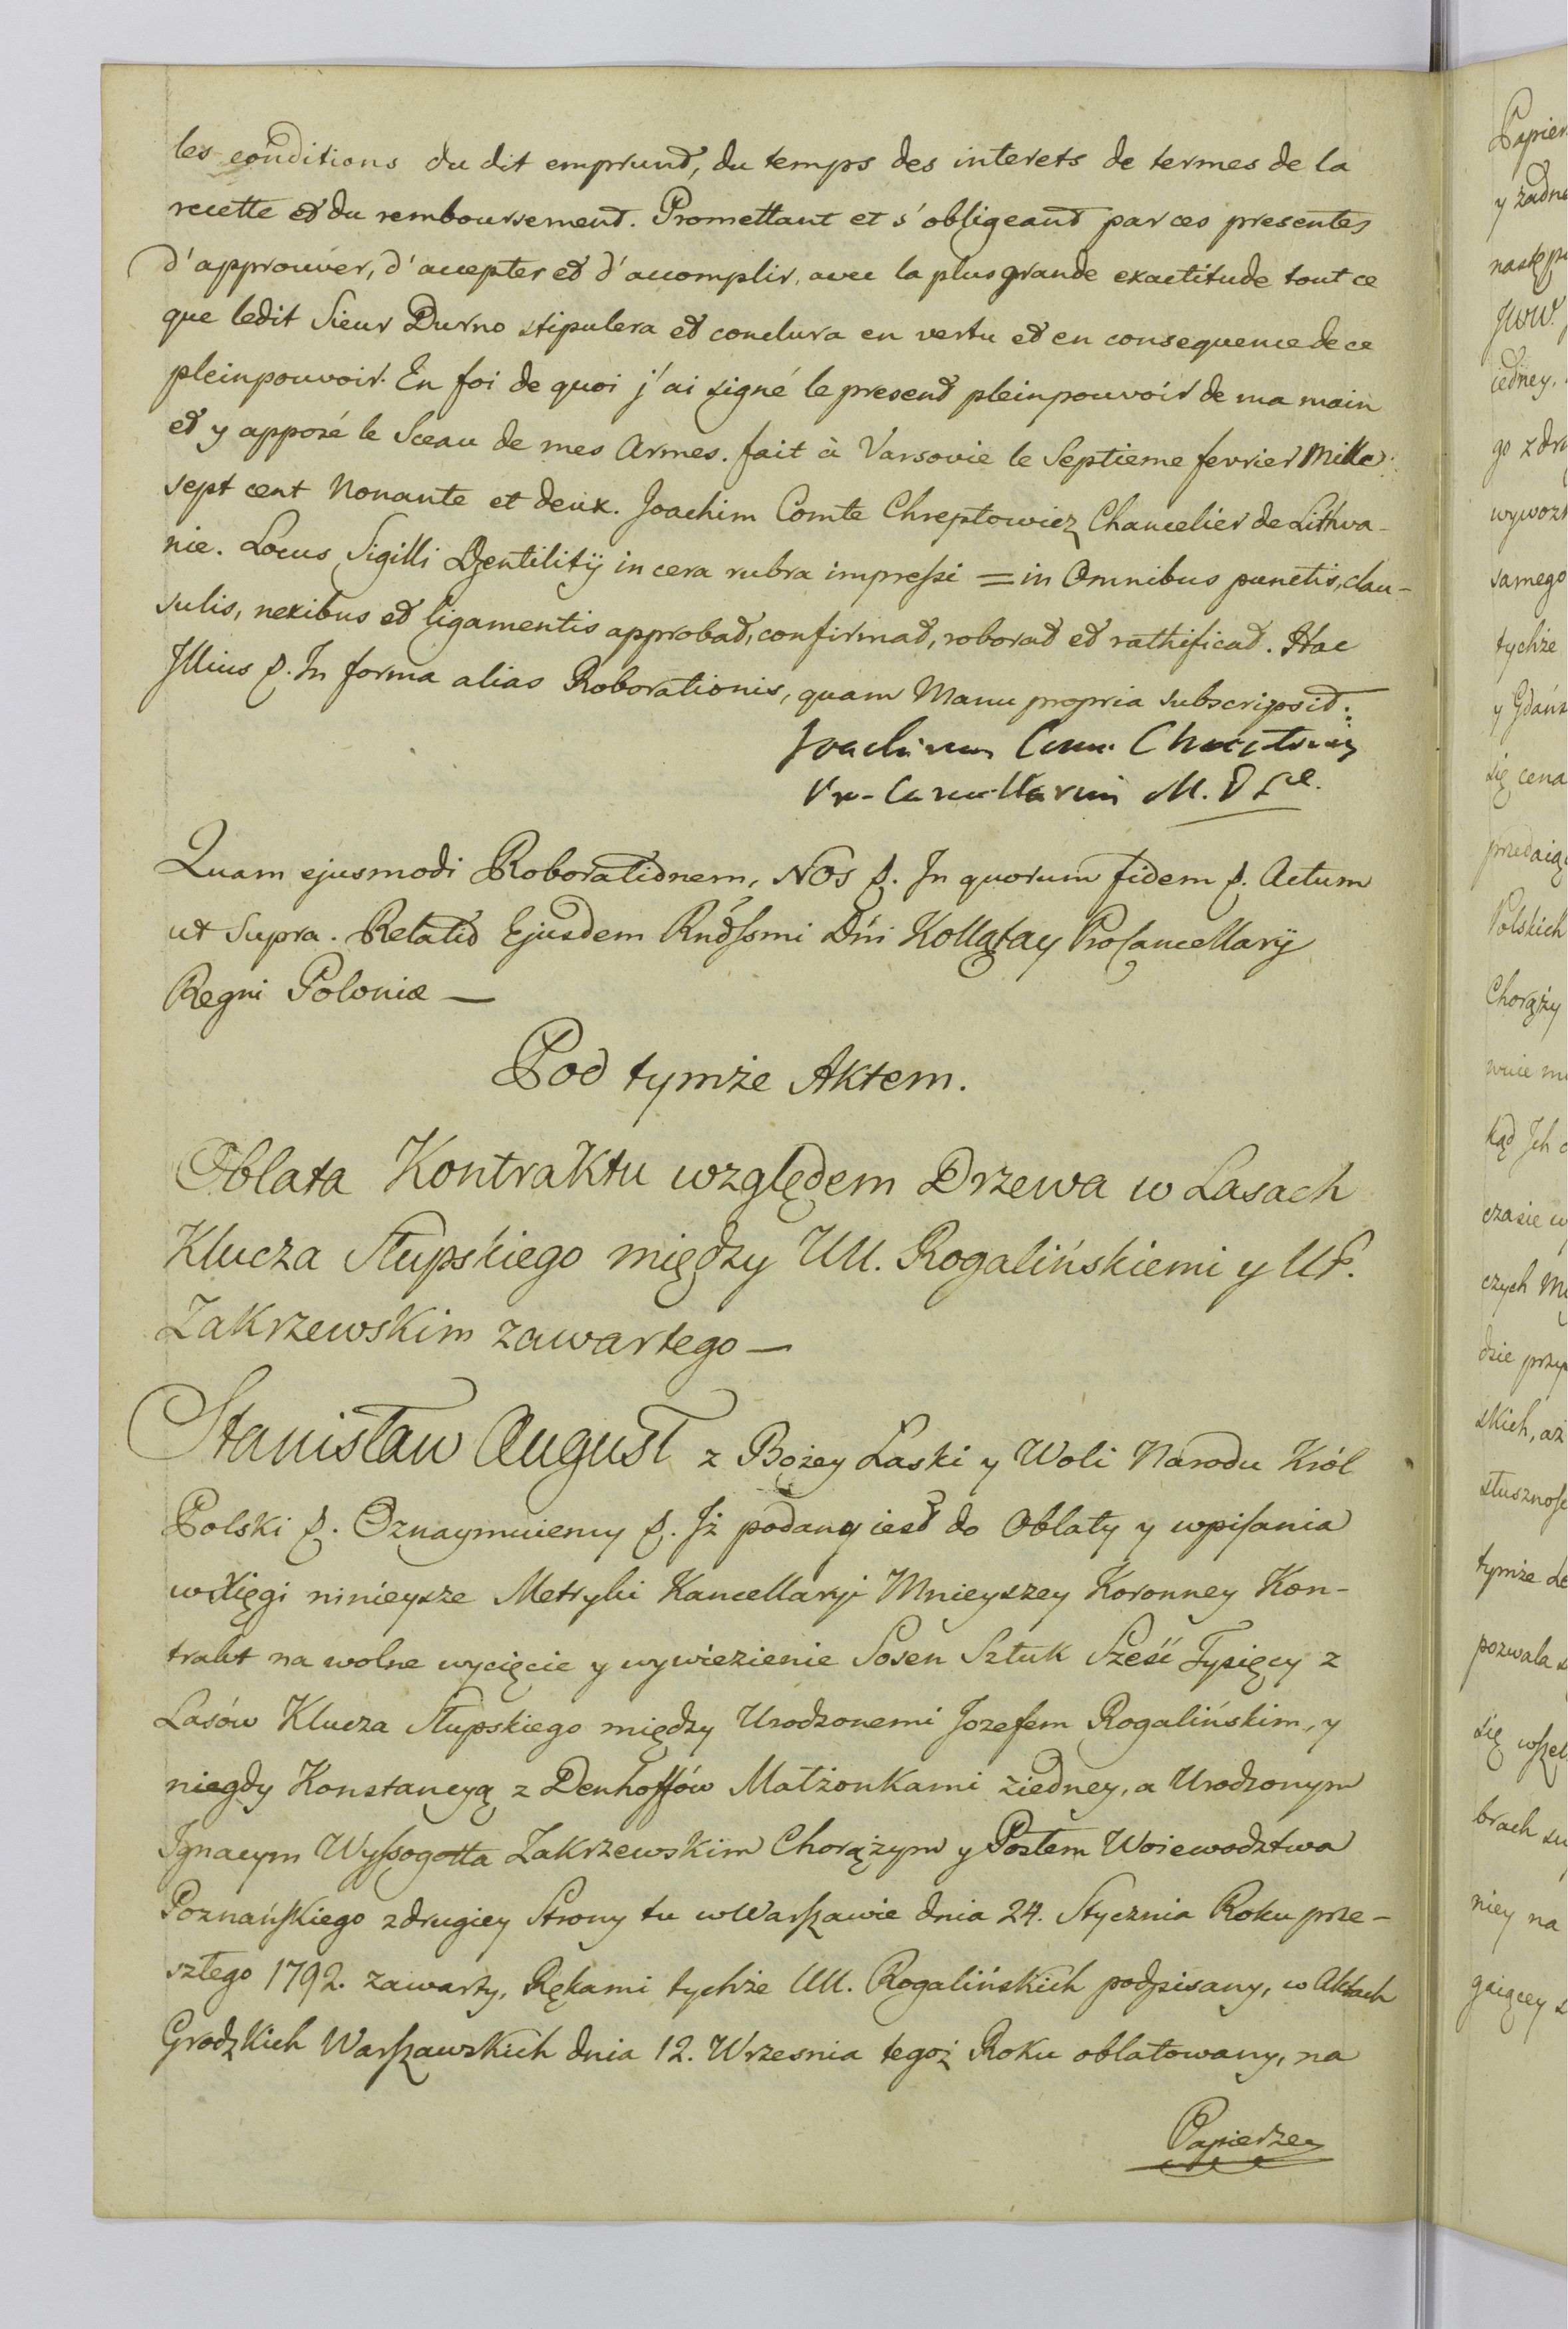 les conditions du dit emprunt, du temps des interets de termes de la
recette et du remboursement. Promettant et s'obligeant par ces presentes
d'approuver, d'accepter et d'accomplir, avec la plus grande exactitude tout ce
que ledit Sieur Durno stipulera et conclura en vertu et en consequence de ce
pleinpouvoir. En foi de quoi j'ai signé le present pleinpouvoir de ma main
et y apposé le Sceau de mes Armes. fait à Varsovie le Septieme fevrier Mille
sept cent Nonante et deux. Joachim Comte Chreptowicz Chancelier de Lithua-
nie. Locus Sigilli Gentilitij in cera rubra impressi = in Omnibus punctis, clau-
sulis, nexibus et ligamentis approbat, confirmat, roborat et rathificat. Hac
Illius p. In forma alias Roborationis, quam Manu propria subscripsit.
Joachimus Com. Chreptowicz
Pro-Cancellarius M. D. L.
Quam ejusmodi Roborationem, Nos p. In quorum fidem p. Actum
ut Supra. Relatio Ejusdem Rndssmi Dni Kołłątay ProCancellarij
Regni Poloniæ —
Pod tymże Aktem.
Oblata Kontraktu względem Drzewa w Lasach
Klucza Słupskiego między UU. Rogalińskiemi y UP.
Zakrzewskim zawartego —
Stanisław August z Bożey Łaski y Woli Narodu Król
Polski p. Oznaymuiemy p. Iż podany iest do Oblaty y wpisania
w Xięgi ninieysze Metryki Kancellaryi Mnieyszey Koronney Kon-
trakt na wolne wycięcie y wywiezienie Sosen Sztuk Sześć Tysięcy z
Lasów Klucza Słupskiego między Urodzonemi Jozefem Rogalińskim, y
niegdy Konstancyą z Denhoffów Małżonkami ziedney, a Urodzonym
Ignacym Wyssogotta Zakrzewskim Chorążym y Posłem Woiewodztwa
Poznańskiego z drugiey Strony tu w Warszawie dnia 24. Stycznia Roku prze-
szłego 1792. zawarty, Rękami tychże UU. Rogalińskich podpisany, w Aktach
Grodzkich Warszawskich dnia 12. Wrzesnia tegoż Roku oblatowany, na
Papierze
Papier
y żadne
następu
JWW.
iedney.
go z dru
wywozi
samego
tychże
y Gdańs
się cena
przedaią
Polskich
Chorąży
kąd Ich
czasie w
czych
dzie przyp
skich, aż
słusznoś
tymże
pozwala
się wszel
brach
niey na